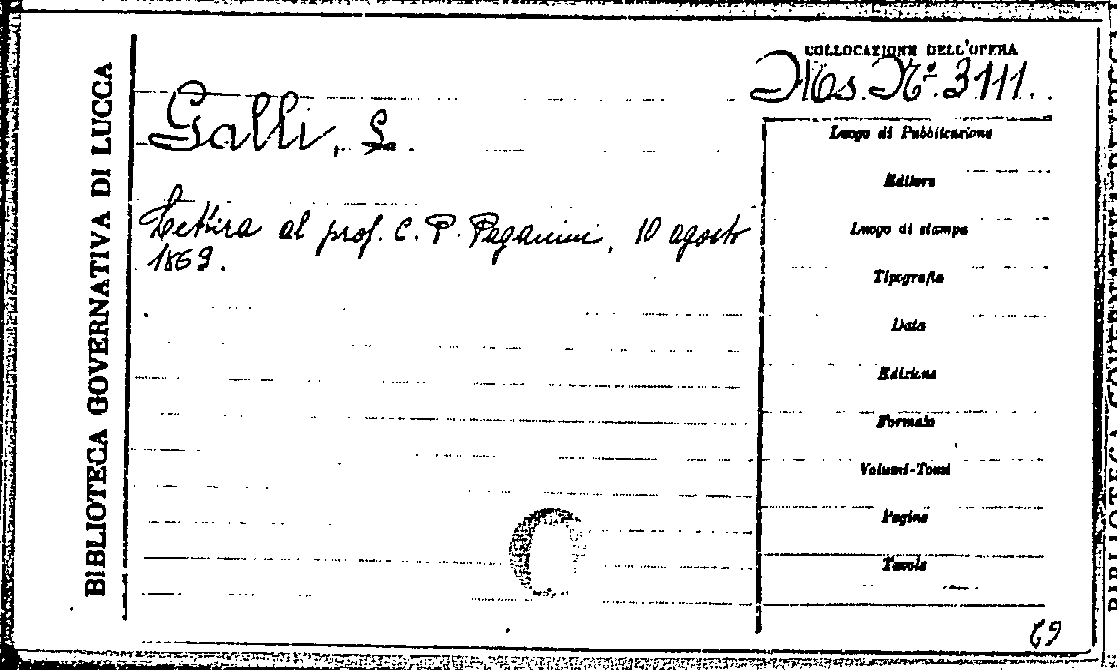 BIBLIOTECA GOVERNATIVA DI LUCCA
COLLOCAZIONE DELL'OPERA
Ms. Nº. 3111.
Galli, S.
Lettera al prof. C. P. Paganini, 10 agosto
1869.
Luogo di Pubblicazione
Editore
Luogo di stampa
Tipografia
Data
Edizione
Formato
Volumi-Tomi
Pagine
Tavole
69